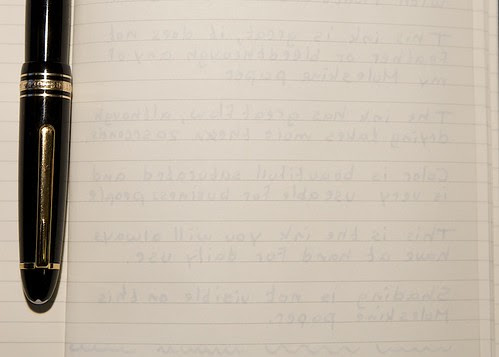 This ink is great, it does not
feather or bleedthrough any of
my Moleskine paper
The ink has great flow, although
drying takes more than 20 seconds.
Color is beautifull saturated and
is very useable for business people.
This is the ink you will always
have at hand for daily use.
Shading is not visible on this
Moleskine paper.